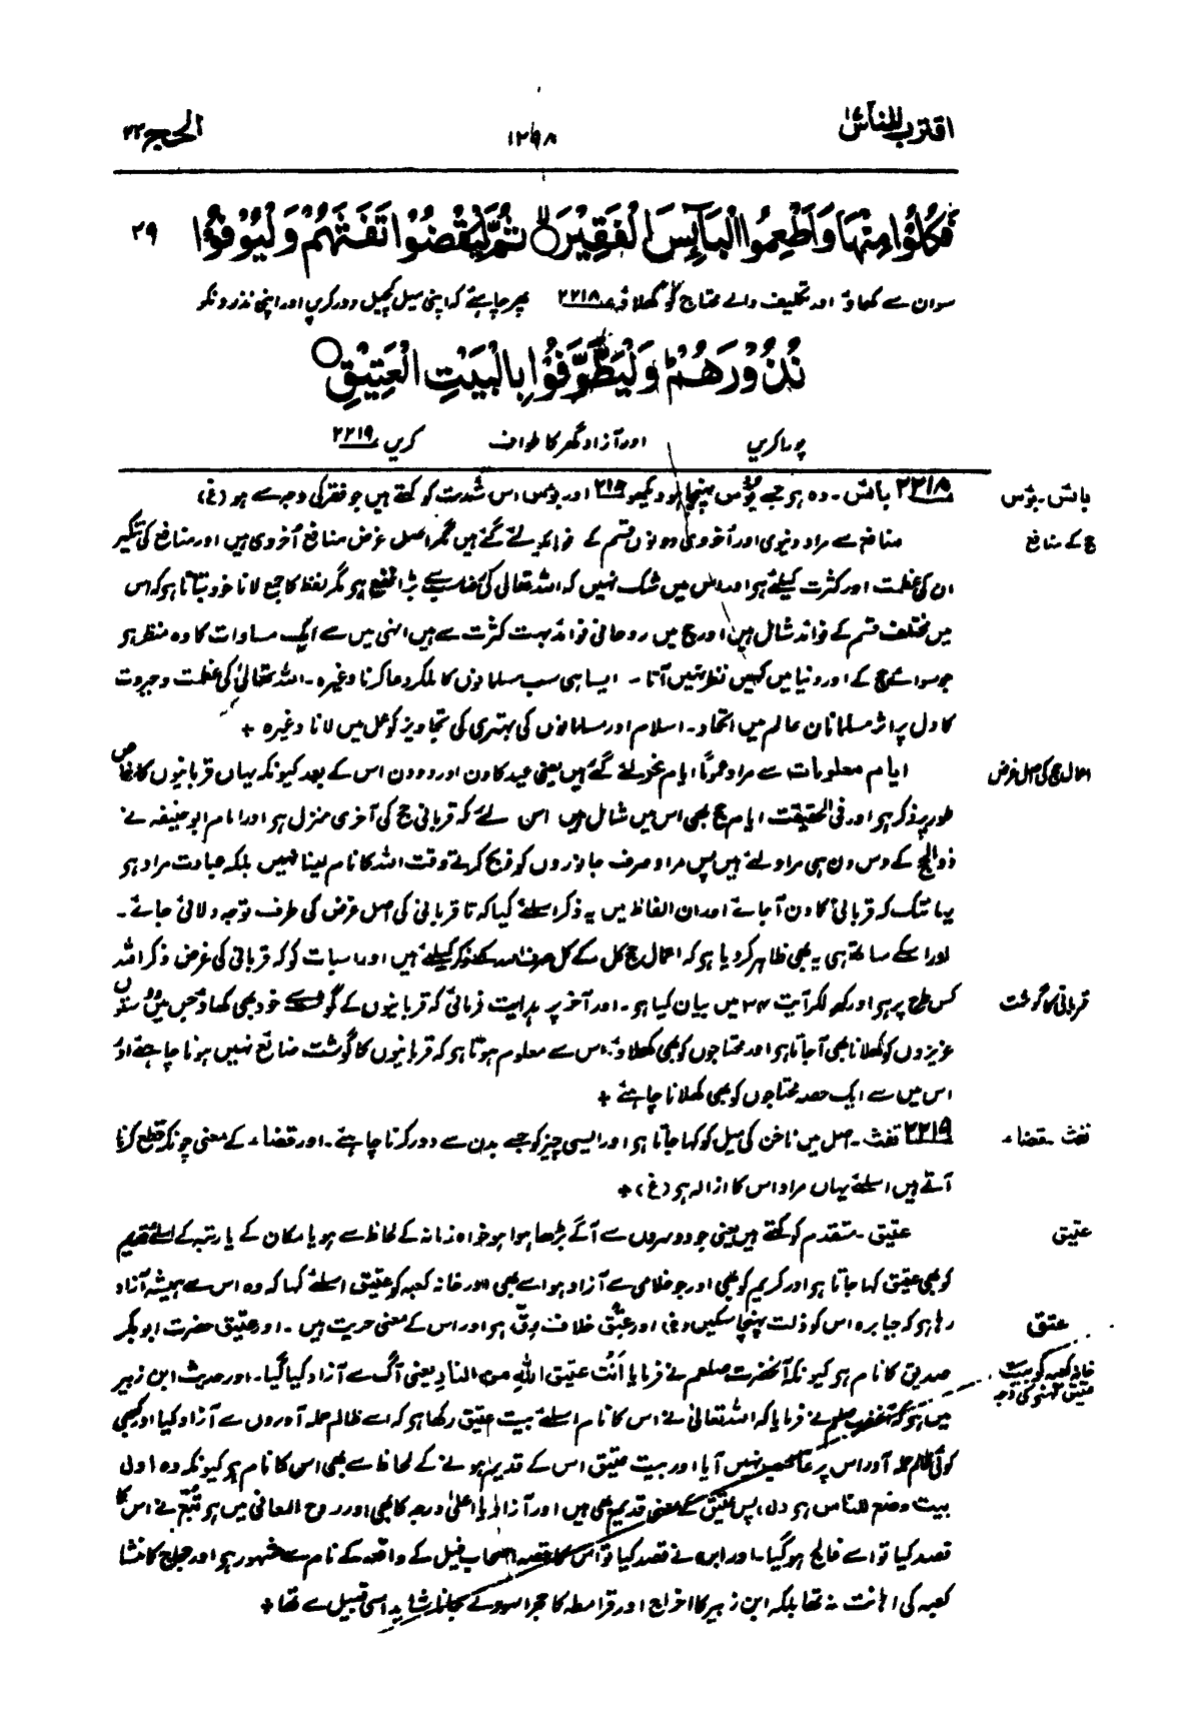 اقترب للناس ۱۷
۱۲۹۸
الحج ۲۲
فَكُلُوْا مِنْهَا وَاَطْعِمُوا الْبَآئِسَ الْفَقِيْرَ ثُمَّ لْيَقْضُوْا تَفَثَهُمْ وَلْيُوْفُوْا
۲۹
سو ان سے کھاؤ اور تکلیف والے محتاج کو کھلاؤ ۲۲۱۸ پھر چاہئے کہ اپنی میل کچیل دور کریں اور اپنی نذروں کو
نُذُوْرَهُمْ وَلْيَطَّوَّفُوْا بِالْبَيْتِ الْعَتِيْقِ
پورا کریں اور آزاد گھر کا طواف کریں ۲۲۱۹
بائس۔ بؤس
۲۲۱۸ بائس۔ وہ ہو جسے بؤس پہنچا ہو دیکھو ۲۱۹ اور بؤس اس شدت کو کہتے ہیں جو فقر کی وجہ سے ہو (غ)
حج کے منافع
منافع سے مراد دنیوی اور اُخروی دونوں قسم کے فوائد لئے گئے ہیں مگر اصل غرض منافع اُخروی ہیں اور منافع کی تنکیر
ان کی عظمت اور کثرت کیلئے ہو اور اس میں شک نہیں کہ اللہ تعالی کی رضا سب سے بڑا نفع ہو مگر لفظ کا جمع لانا خود بتاتا ہو کہ اس
میں مختلف قسم کے فوائد شامل ہیں اور حج میں روحانی فوائد بہت کثرت سے ہیں انہی میں سے ایک مساوات کا وہ منظر ہو
جو سوائے حج کے اور دنیا میں کہیں نظر نہیں آتا۔ ایسا ہی سب مسلمانوں کا ملکر دعا کرنا وغیرہ۔ اللہ تعالیٰ کی عظمت وجبروت
کا دل پر اثر مسلمانان عالم میں اتحاد۔ اسلام اور مسلمانوں کی بہتری کی تجاویز کو عمل میں لانا وغیرہ +
اعمال حج کی اصل غرض
ایام معلومات سے مراد عموماً ایام نحر لئے گئے ہیں یعنی عید کا دن اور دو دن اس کے بعد کیونکہ یہاں قربانیوں کا خاص
طور پر ذکر ہو اور فی الحقیقت ایام حج بھی اس میں شامل ہیں اس لئے کہ قربانی حج کی آخری منزل ہو اور امام ابو حنیفہ نے
ذوالحج کے دس دن ہی مراد لئے ہیں پس مراد صرف جانوروں کو ذبح کرتے وقت اللہ کا نام لینا نہیں بلکہ عبادت مراد ہو
یہانتک کہ قربانی کا دن آجائے اور ان الفاظ میں یہ ذکر اسلئے کیا کہ تا قربانی کی اصل غرض کی طرف توجہ دلائی جائے۔
اور اسکے ساتھ ہی یہ بھی ظاہر کردیا ہو کہ اعمال حج کل کے کل صرف اللہ کے ذکر کیلئے ہیں اور اسبات کو کہ قربانی کی غرض ذکر اللہ
قربانی کا گوشت
کس طرح پر ہو اور کھول کر آیت ۳۴ میں بیان کیا ہو۔ اور آخر پر ہدایت فرمائی کہ قربانیوں کے گوشت سے خود بھی کھاؤ جس میں دوستوں
عزیزوں کو کھلانا بھی آجاتا ہو اور محتاجوں کو بھی کھلاؤ۔ اس سے معلوم ہوتا ہو کہ قربانیوں کا گوشت ضائع نہیں ہونا چاہئے اور
اس میں سے ایک حصہ محتاجوں کو بھی کھلانا چاہئے +
تفث۔ قضاء
۲۲۱۹ تفث۔ اصل میں ناخن کی میل کو کہا جاتا ہو اور ایسی چیز کو جسے بدن سے دور کرنا چاہئے۔ اور قضاء کے معنی چونکہ قطع کرنا
آتے ہیں اسلئے یہاں مراد اس کا ازالہ ہو (غ) +
عتیق
عتیق۔ متقدم کو کہتے ہیں یعنی جو دوسروں سے آگے بڑھا ہوا ہو خواہ زمانہ کے لحاظ سے ہو یا مکان کے یا رتبہ کے اسلئے قدیم
کو بھی عتیق کہا جاتا ہو اور کریم کو بھی اور جو غلامی سے آزاد ہو اسے بھی اور خانہ کعبہ کو عتیق اسلئے کہا کہ وہ اس سے ہمیشہ آزاد
عتق
رہا ہو کہ جبابرہ اس کو ذلت پہنچا سکیں (غ) اور عتق خلاف رِقّ ہو اور اس کے معنی حریت ہیں۔ اور عتیق حضرت ابو بکر
خانہ کعبہ کو بیت عتیق کہنے کی وجہ
صدیق کا نام ہو کیونکہ آنحضرت صلعم نے فرمایا اَنْتَ عتیق اللہِ من النار یعنی آگ سے آزاد کیا گیا۔ اور حدیث ابن زبیر
میں ہو کہ آنحضرت صلعم نے فرمایا کہ اللہ تعالیٰ نے اس کا نام اسلئے بیت عتیق رکھا ہو کہ اسے ظالم حملہ آوروں سے آزاد کیا اور کبھی
کوئی ظالم حملہ آور اس پر غالب نہیں آیا اور بیت عتیق اس کے قدیم ہونے کے لحاظ سے بھی اس کا نام ہو کیونکہ وہ اول
بیت وضع للناس ہو (ل) پس عتیق کے معنی قدیم بھی ہیں اور آزاد یا اعلیٰ درجہ کا بھی اور روح المعانی میں ہو تُبّع نے اس کا
قصد کیا تو اسے فالج ہوگیا۔ اور ابرہہ نے قصد کیا تو اس کا قصہ اصحاب فیل کے واقعہ کے نام سے مشہور ہو اور حجاج کا منشا
کعبہ کی اہانت نہ تھا بلکہ ابن زبیر کا اخراج اور قرامطہ کا حجر اسود لے جانا شاید اسی قبیل سے تھا +